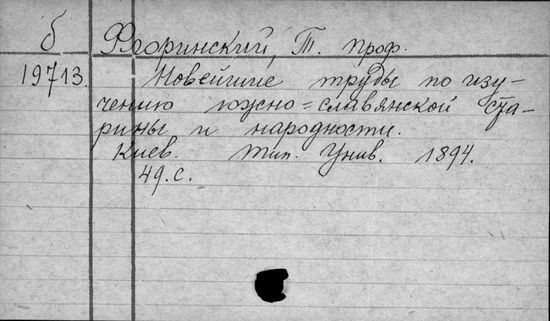 б Флоринский, Т. проф.
19713. Новейшие труды по изу-
чению южно=славянской ста-
рины и народности.
Киев. тип. Унив. 1894.
49. с.